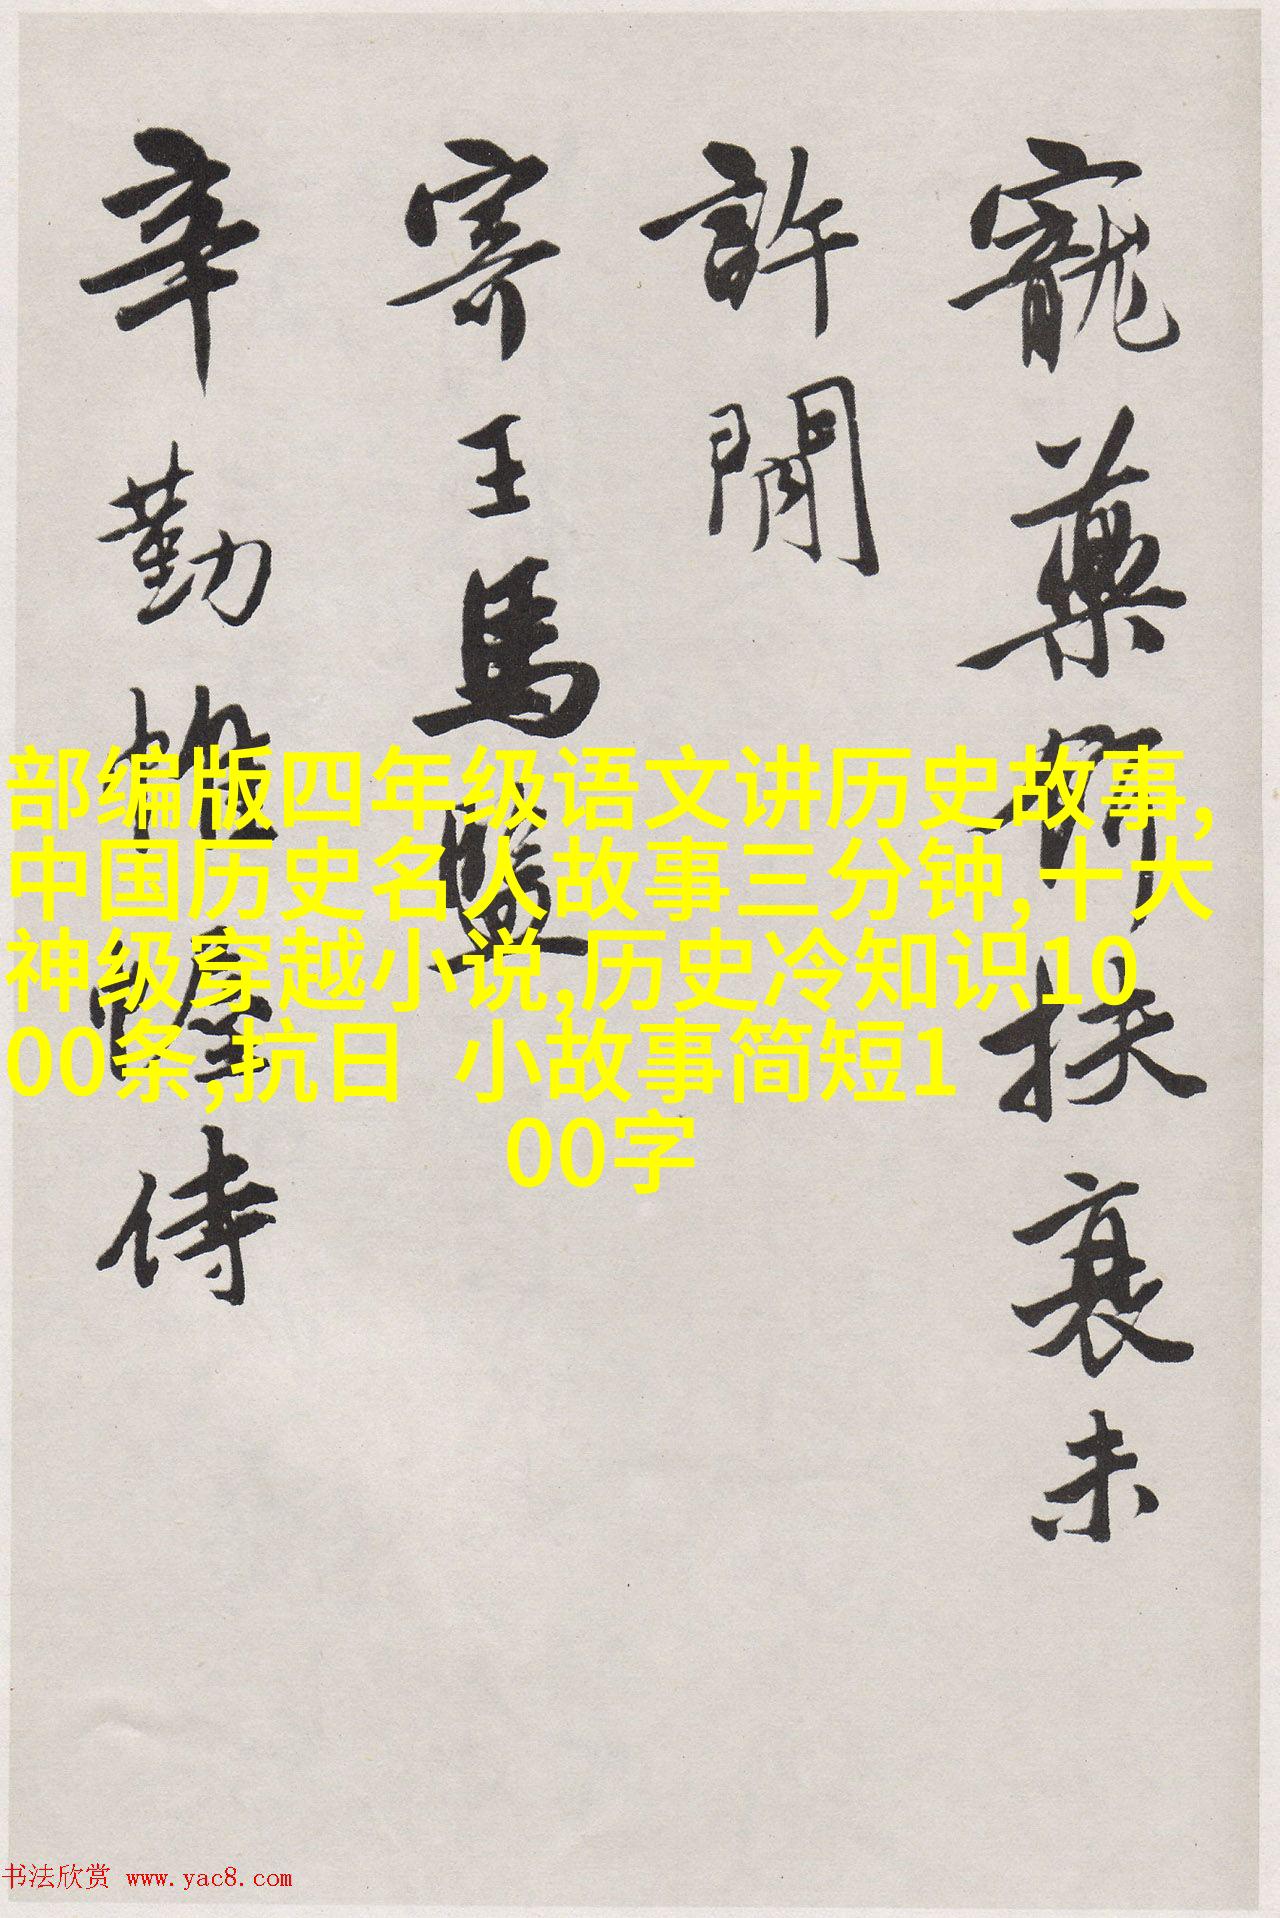 寵藥扶衰未
許閒
寄王馬監
辛勤帷幄侍
部编版四年级语文讲历史故事,
中国历史名人故事三分钟,十大
神级穿越小说,历史冷知识10
00条,抗日 小故事简短1
00字
书法欣赏 www.yac8.com